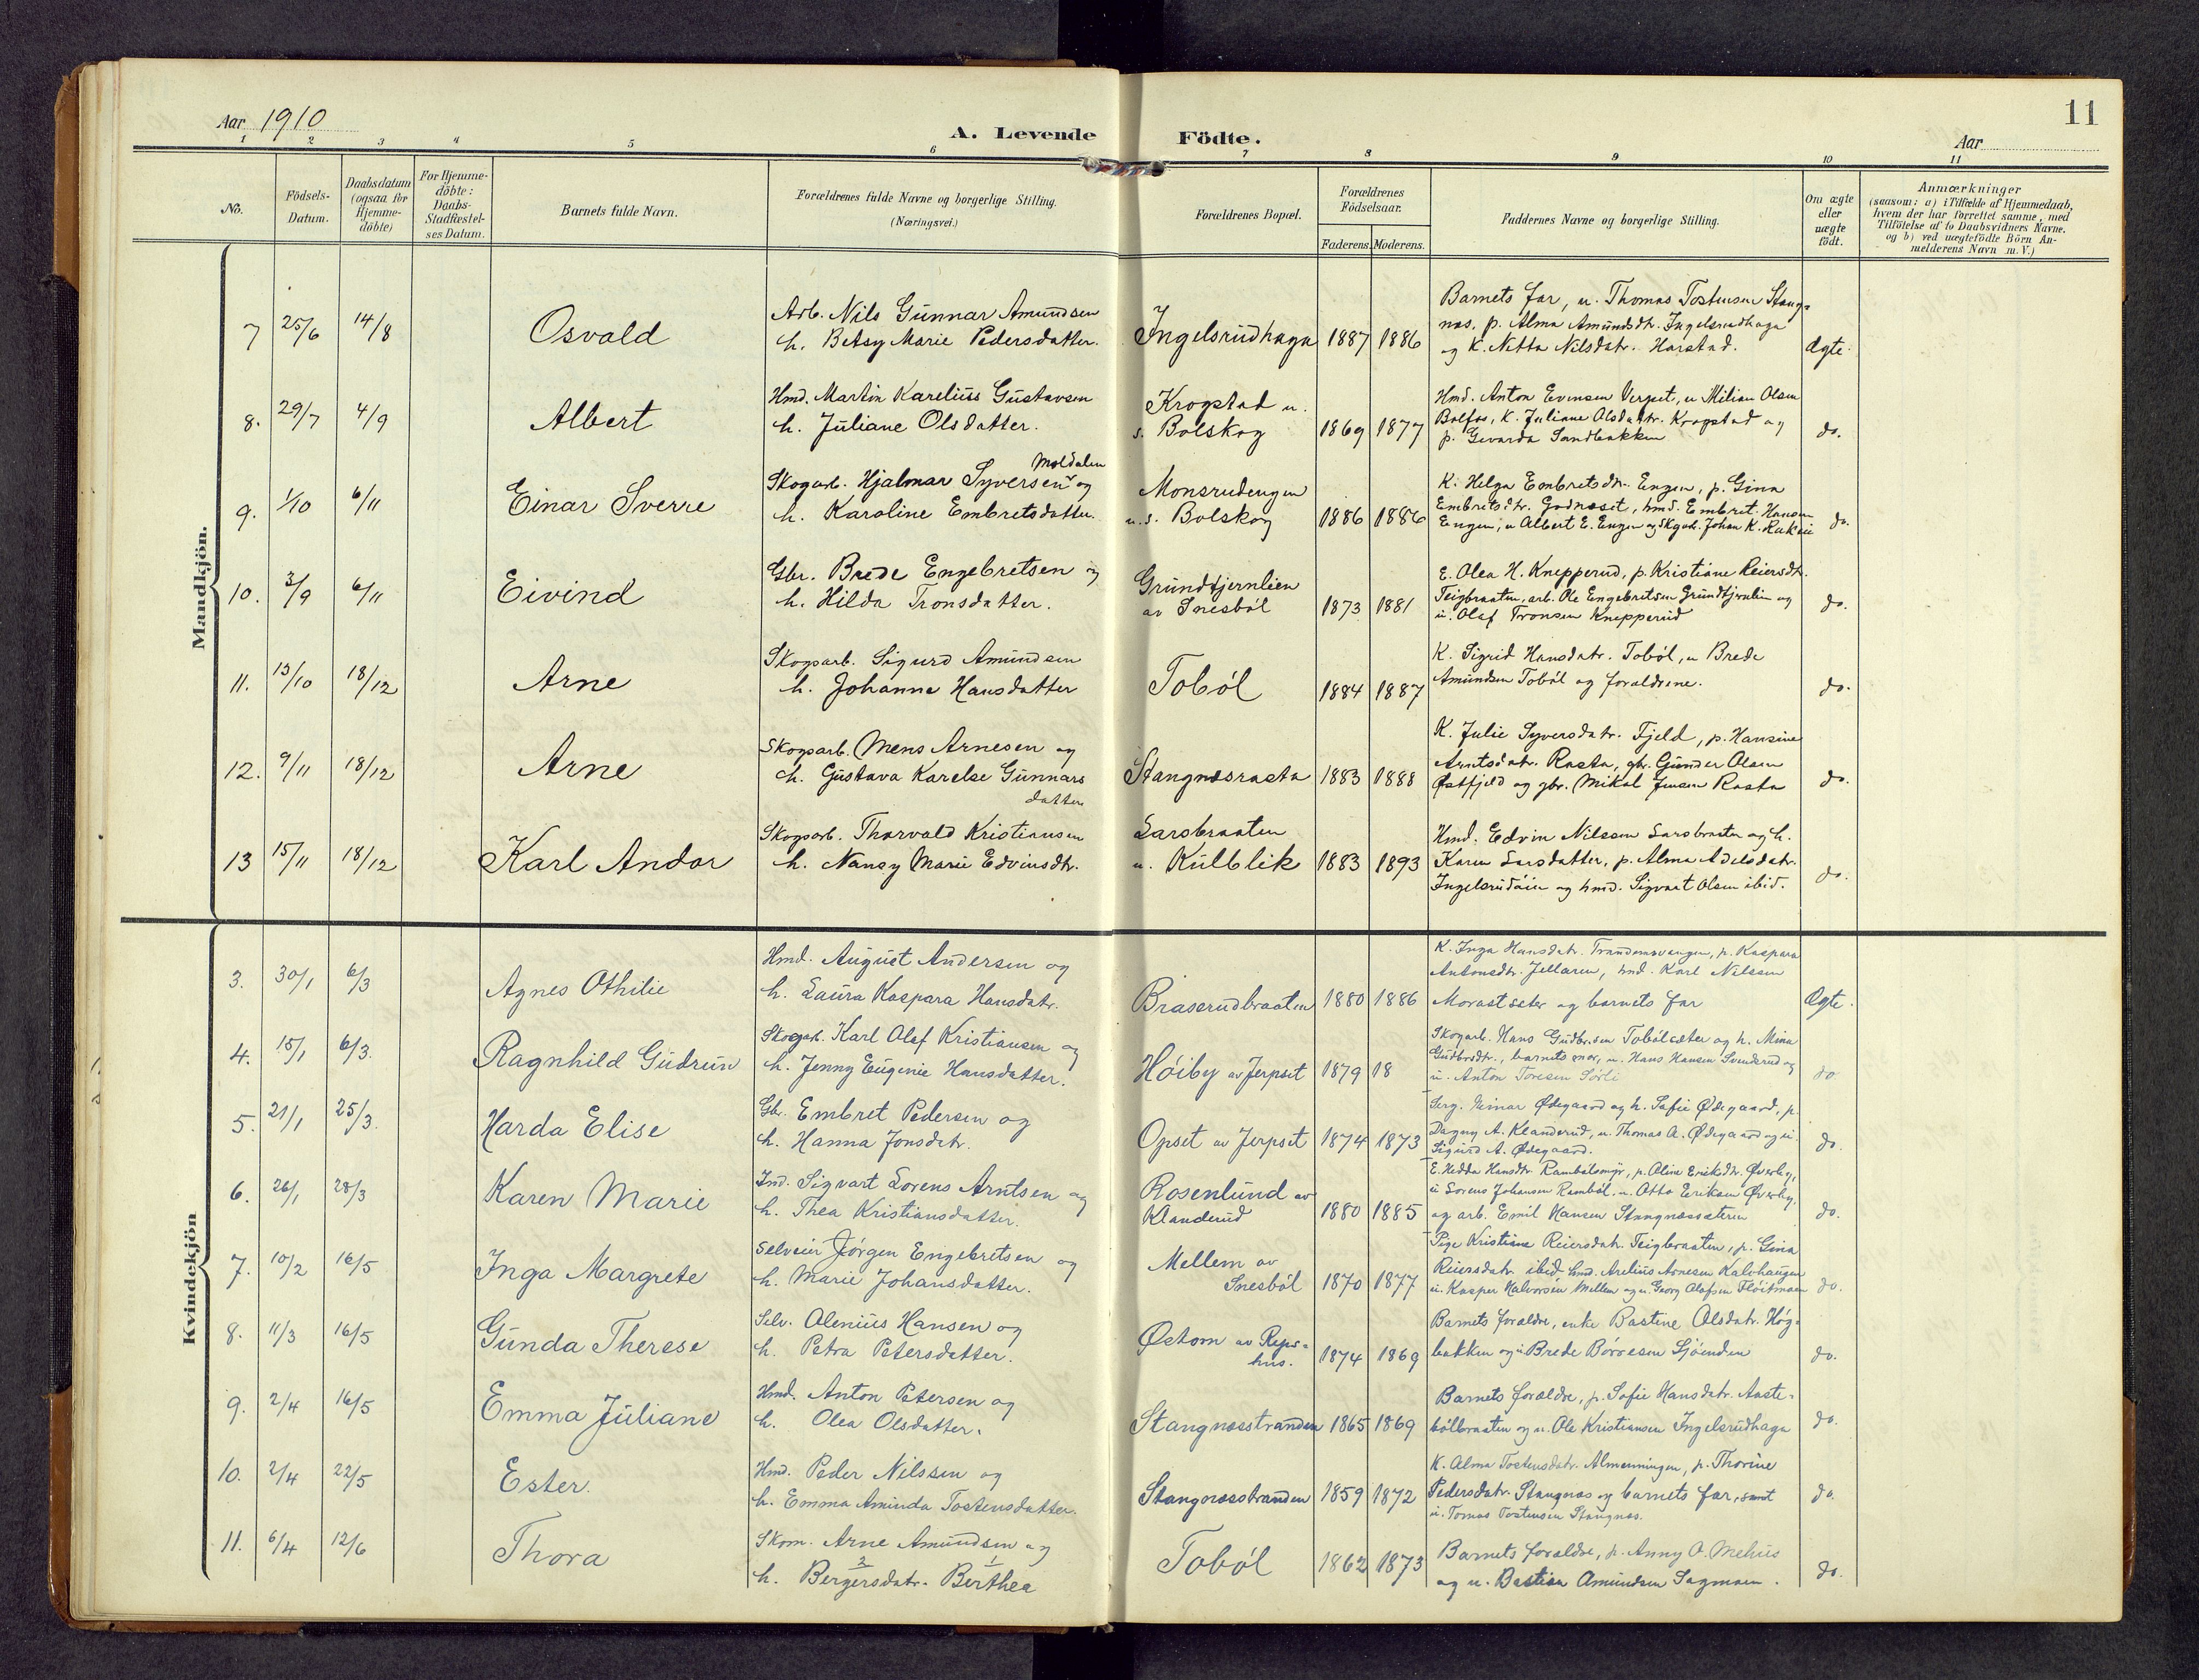 11
Aar 1910
A. Levende Födte.
Aar
1 2 3 4 5 6 7 8 9 10 11
No.
Födsels-Datum.
Daabsdatum (ogsaa for Hjemme-döbte)
For Hjemme-döbte: Daabs-Stadfæstel-ses Datum.
Barnets fulde Navn.
Forældrenes fulde Navne og borgerlige Stilling. (Næringsvei.)
Forældrenes Bopæl.
Forældrenes Födselsaar.
Faderens. Moderens.
Faddernes Navne og borgerlige Stilling.
Om ægte eller uægte födt.
Anmærkninger
(saasom: a) i Tilfælde af Hjemmedaab,
hvem der har forrettet samme, med
Tilföielse af to Daabsvidners Navne.
og b) ved uægtefödte Börn An-
melderens Navn m.V.)
Mandkjön.
7 25/6 14/8 Osvald
Arb. Nils Gunnar Amundsen
h. Betsy Marie Pedersdatter.
Ingelsrudhaga 1887 1886
Barnets far, u. Thomas Tostensen Stang-
næs. p. Alma Amundsdtr. Ingelsrudhaga
og k. Netta Nilsdatr. Harstad.
Ægte.
8. 29/7 4/9 Albert
Hmd. Martin Karelius Gustavsen
h. Juliane Olsdatter.
Krogstad u.
s. Bolskog 1869 1877
Hmd. Anton Evensen Verpet, u Milian Olsen
Bolfos, k. Juliane Olsdatr. Krogstad og
p. Gevarda Sandbakken
do.
9. 1/10 6/11 Einar Sverre
Moldalen
Skogarb. Hjalmar Syversen og
h. Karoline Embretsdatter.
Monsrudengen
u. s. Bolskog 1886 1886
K. Helga Embretsdtr. Engen, p. Gina
Embretsdtr. Godnæset, hmd. Embret Hansen
Engen, u Albert E. Engen og Skgarb. Johan K.
do.
10. 3/9 6/11 Eivind
Gbr. Brede Engebretsen og
h. Hilda Tronsdatter.
Grundtjernlien
av Snesböl 1873 1881
E. Olea H. Knepperud, p. Kristiane Reiersdtr.
Teigbraaten, arb. Ole Engebretsen Grundtjernlien og
u. Olaf Tronsen Knepperud
do.
11. 13/10 18/12 Arne
Skogsarb. Sigurd Amundsen
h. Johanne Hansdatter
Toból 1884 1887
K. Sigrid Hansdatr. Toból, u Brede
Amundsen Toból og forældrene.
do.
12. 9/11 18/12 Arne
Skogsarb. Mens Arnesen og
h. Gustava Karelse Gunnars
datter
Stangnæsrasta 1883 1888
K. Julie Syversdatr. Fjeld, p. Hansine
Arntsdatr. Rasta, gbr. Gunder Olsen
Østfjeld og gbr. Mikal Jensen Rasta
do.
13 15/11 18/12 Karl Andor
Skogsarb. Thorvald Kristiansen
h. Nancy Marie Edvinsdtr.
Larsbraaten
u. Kulblik 1883 1893
Hmd. Edvin Nilssen Larsbraaten og h.
Karen Larsdatter, p. Alma Adelsdatr.
Ingelsrudóien og hmd. Sigvart Olsen ibid.
do.
Kvindekjön
3. 30/1 6/3 Agnes Othilie
Hmd. August Andersen og
h. Laura Kaspara Hansdatr.
Braserudbraaten 1880 1886
K. Inga Hansdatr. Trandemsvangen, p. Kaspara
Antonsdtr. Jellaren, hmd. Karl Nilssen
Morastsæter og barnets far
Ægte.
4. 15/1 6/3. Ragnhild Gudrun
Skogarb. Karl Olaf Kristiansen og
h. Jenny Eugenie Hansdatter.
Höiby av Jerpset 1879 18
Skogarb. Hans Gudbr.sen Tobólsæter og h. Mina
Gudbrdtr., barnets mor, u. Hans Hansen Svenderud og
u. Anton Toresen Sörli
do
5. 21/1 25/3. Harda Elise
Gbr. Embret Pedersen og
h. Hanna Jonsdatr.
Opset av Jerpset 1874 1873
Serg. Ødegaard og h. Sofie Ødegaard, p.
Dagny A. Klanderud, u. Thomas A. Ødegaard og u.
Sigurd A. Ødegaard.
do.
6. 26/1 28/3 Karen Marie
Ind. Sigvart Lorens Arntsen og
h. Thea Kristiansdatter.
Rosenlund av
Klanderud 1880 1885
E. Hedda Hansdtr. Rambólsmyr, p. Oline Eriksdtr. Øverby,
u Lorens Johansen Ramból, u. Otto Eriksen Øverby,
og arb. Emil Hansen Stangnæssæteren
do.
7. 10/2 16/5 Inga Margrete
Selveier Jörgen Engebretsen og
h. Marie Johansdatter.
Mellem av
Snesból 1870 1877
Pige Kristiane Reiersdatr. Teigbraaten, p. Gina
Reiersdatr. ibid hmd. Arelius Arnesen Kalvhaugen
u. Kasper Halvorsen Mellem og u. Georg Olafsen Flöitmoen
do.
8. 11/3 16/5 Gunda Therese
Selv. Alenius Hansen og
h. Petra Petersdatter.
Østom av Reps-
hus. 1874 1869
Barnets forældre, enke Bastine Olsdatr. Hög-
bakken og u Brede Börresen Sjöenden
do.
9. 2/4 16/5 Emma Juliane
Hmd. Anton Petersen og
h. Olea Olsdatter.
Stangnæsstranden 1865 1869
Barnets forældre, p. Sofie Hansdatr. Aaste-
bólbraaten og u. Ole Kristiansen Ingelsrudhaga
do.
10. 2/4 22/5 Ester.
Hmd. Peder Nilssen og
h. Emma Aminda Tostensdatter.
Stangnæsstranden 1859 1872
K. Alma Tostensdatr. Almenningen, p. Thorine
Pedersdatr. Stangnæs og barnets far, samt
u. Tomas Tostensen Stangnæs.
do.
11. 6/4 12/6 Thora
Skom. Arne Amundsen og
2 1
h. Bergersdatr. Berthea
Toból 1862 1873
Barnets forældre, p. Anny O. Mehus
og u. Bastian Amundsen Sagmoen.
do.